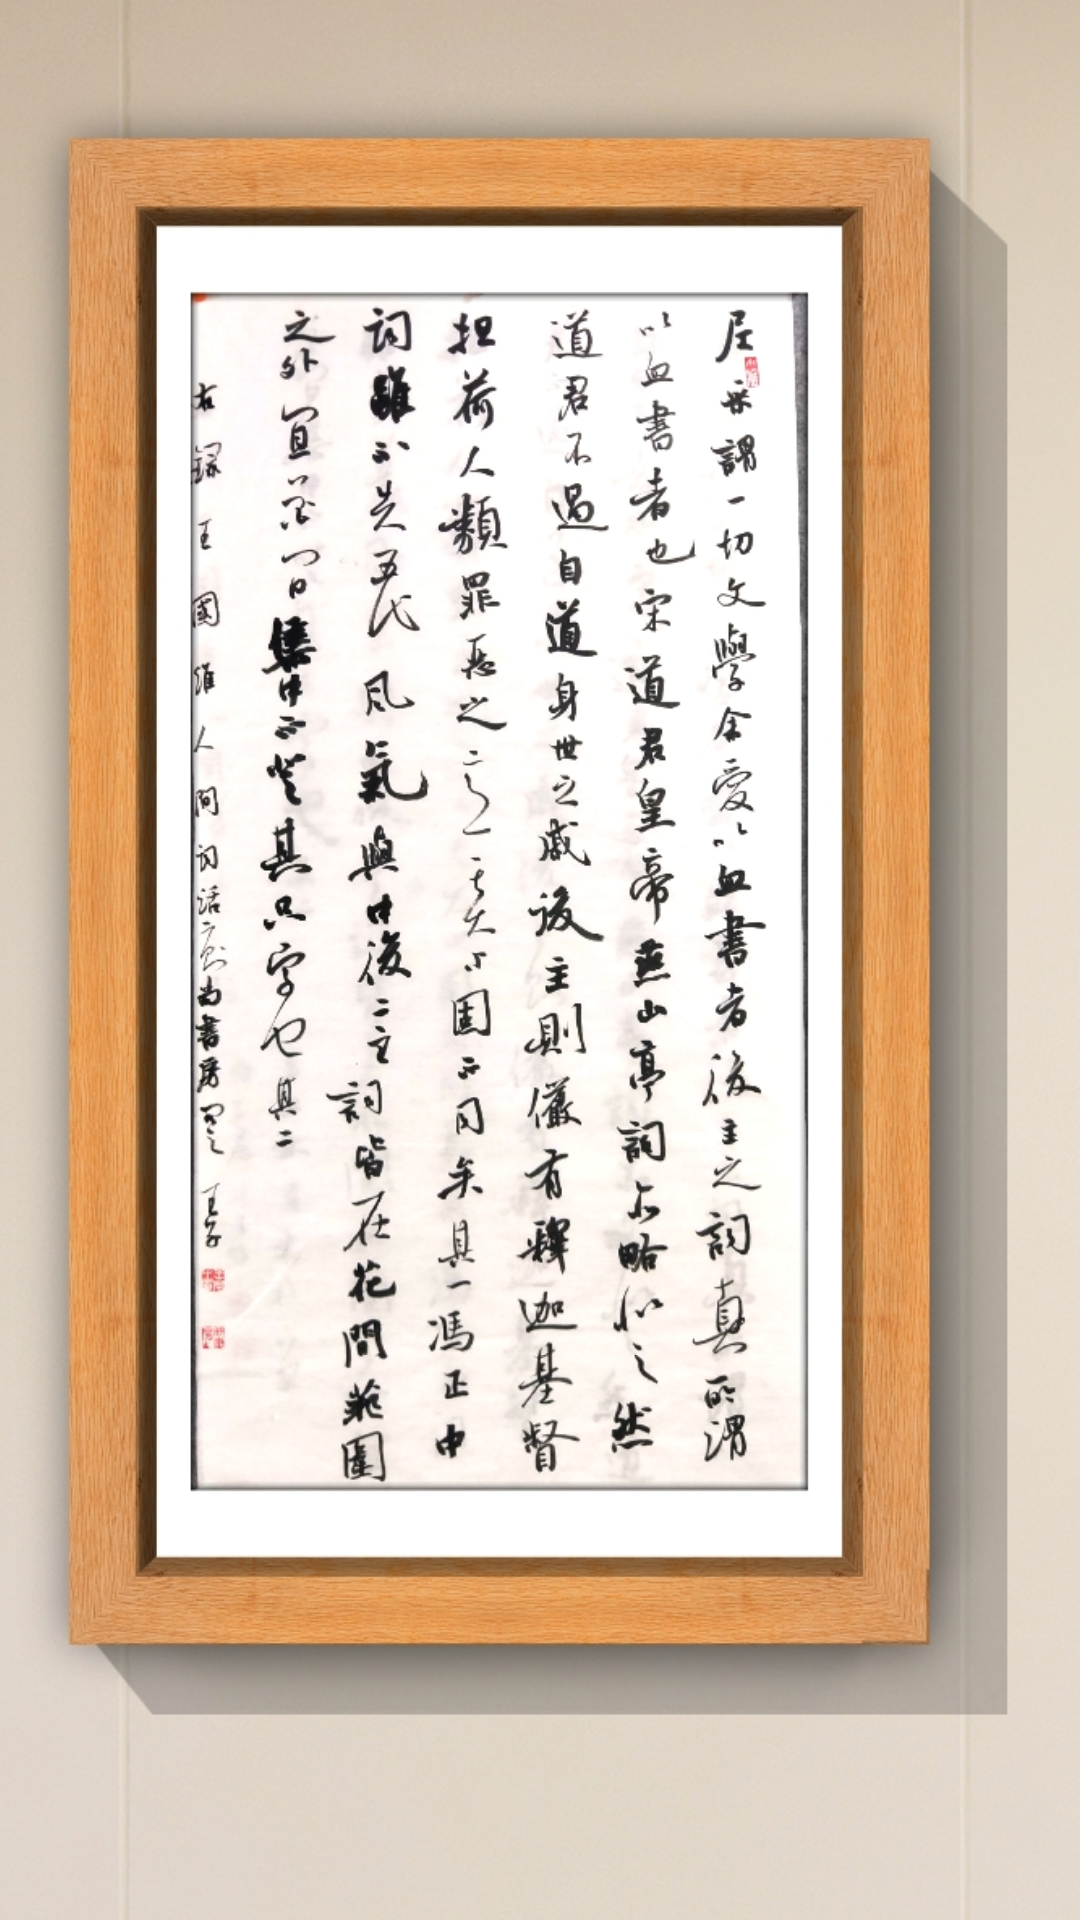 尼采謂一切文學余愛以血書者後主之詞真所謂
以血書者也宋道君皇帝燕山亭詞亦略似之然
道君不過自道身世之戚後主則儼有釋迦基督
担荷人類罪惡之意其大小固不同矣其一馮正中
詞雖不失五代風氣與中後二主詞皆在花間範圍
之外宜花間集中不登其只字也其二
右錄王國維人間詞話二則尚書房